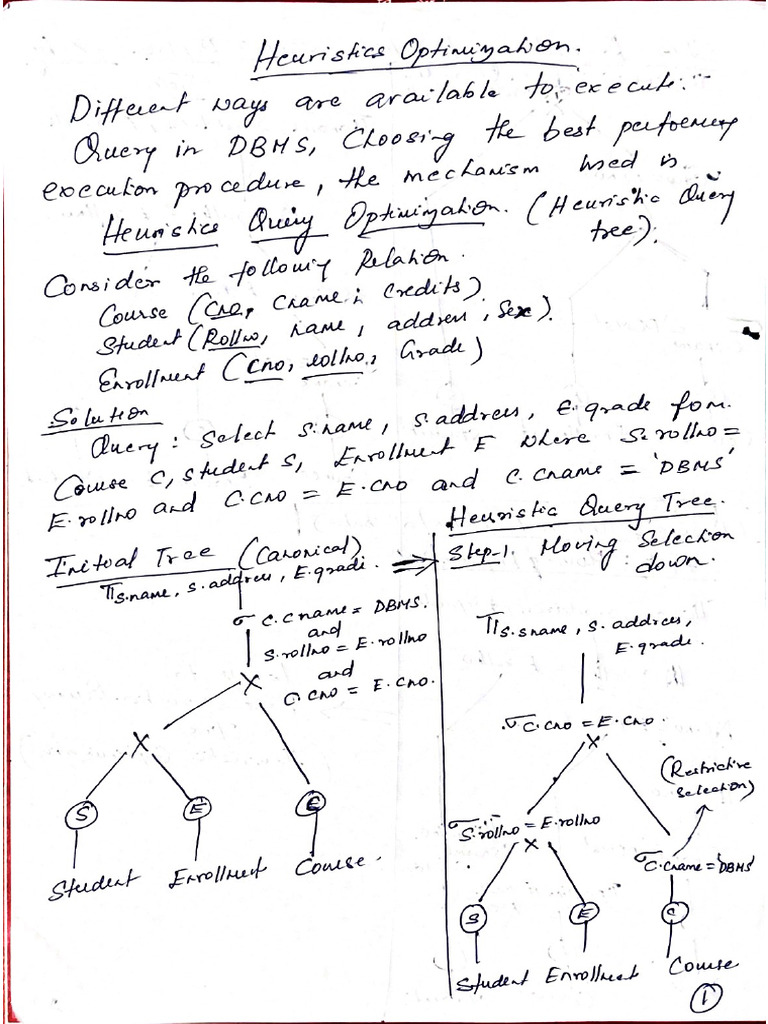 Heuristics Optimization.
Different ways are available to execute
Query in DBMS, Choosing the best performing
execution procedure, the mechanism used is
Heuristics Query Optimization. (Heuristic Query
tree).
Consider the following Relation.
Course (Cno, Cname, Credits)
Student (Rollno, name, address, Sex).
Enrollment (Cno, rollno, Grade)
Solution
Query : Select S.name, S.address, E.grade from
Course C, Student S, Enrollment E where S.rollno =
E.rollno and C.Cno = E.Cno and C.Cname = 'DBMS'
Initial Tree (Canonical) ⇒
π S.name, S.address, E.grade.
σ C.Cname = DBMS.
and
S.rollno = E.rollno
and
C.Cno = E.Cno.
X
X
S E C
Student Enrollment Course.
Heuristic Query Tree.
Step-1. Moving Selection
down.
π S.sname, S.address,
E.grade.
σ C.Cno = E.Cno.
X
(Restrictive
Selection)
σ S.rollno = E.rollno
X
σ C.Cname = 'DBMS'
S E C
Student Enrollment Course
1